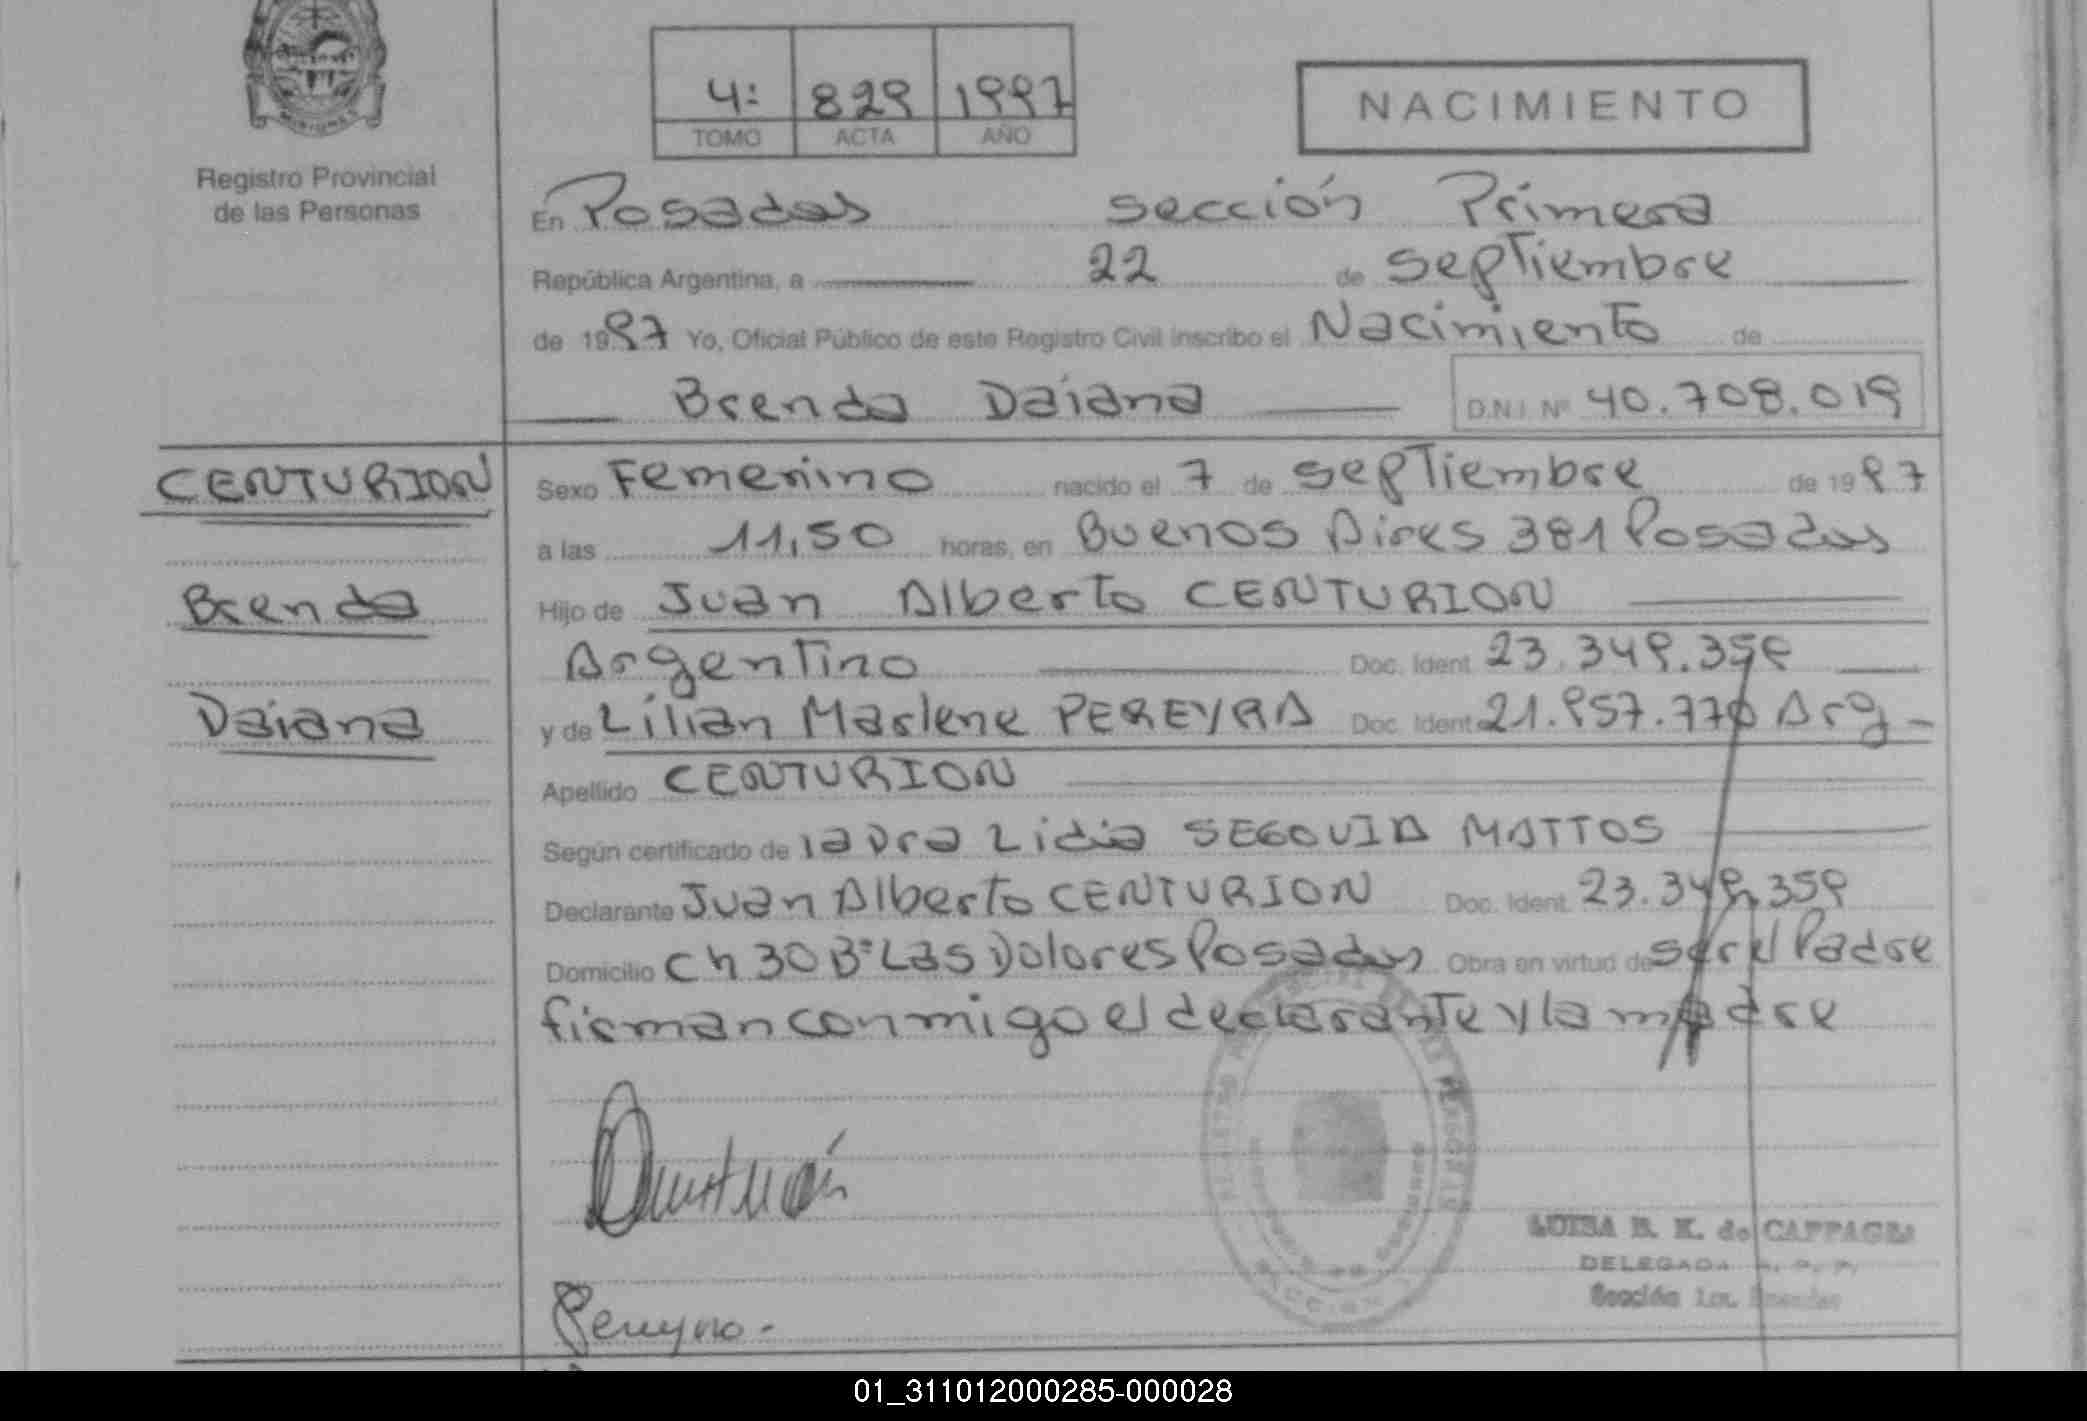 MISIONES
Registro Provincial
de las Personas
4: 829 1997
TOMO ACTA AÑO
NACIMIENTO
En Posadas sección Primera
República Argentina, a 22 de septiembre
de 1997 Yo, Oficial Público de este Registro Civil inscribo el Nacimiento de
Brenda Daiana D.N.I. Nº 40.708.019
CENTURION
Brenda
Daiana
Sexo Femenino nacido el 7 de septiembre de 1997
a las 11,50 horas, en Buenos Aires 381 Posadas
Hijo de Juan Alberto CENTURION
Argentino Doc. Ident. 23.349.359
y de Lilian Marlene PEREYRA Doc. Ident. 21.957.770 Arg-
Apellido CENTURION
Según certificado de la Dra Lidia SEGOVIA MATTOS
Declarante Juan Alberto CENTURION Doc. Ident. 23.349.359
Domicilio Ch 30 Bº Las Dolores Posadas Obra en virtud de ser el Padre
firman conmigo el declarante y la madre
LUISA B. K. de
DELEGADA
Sección 1ra. Posadas
Pereyra.
01_311012000285-000028